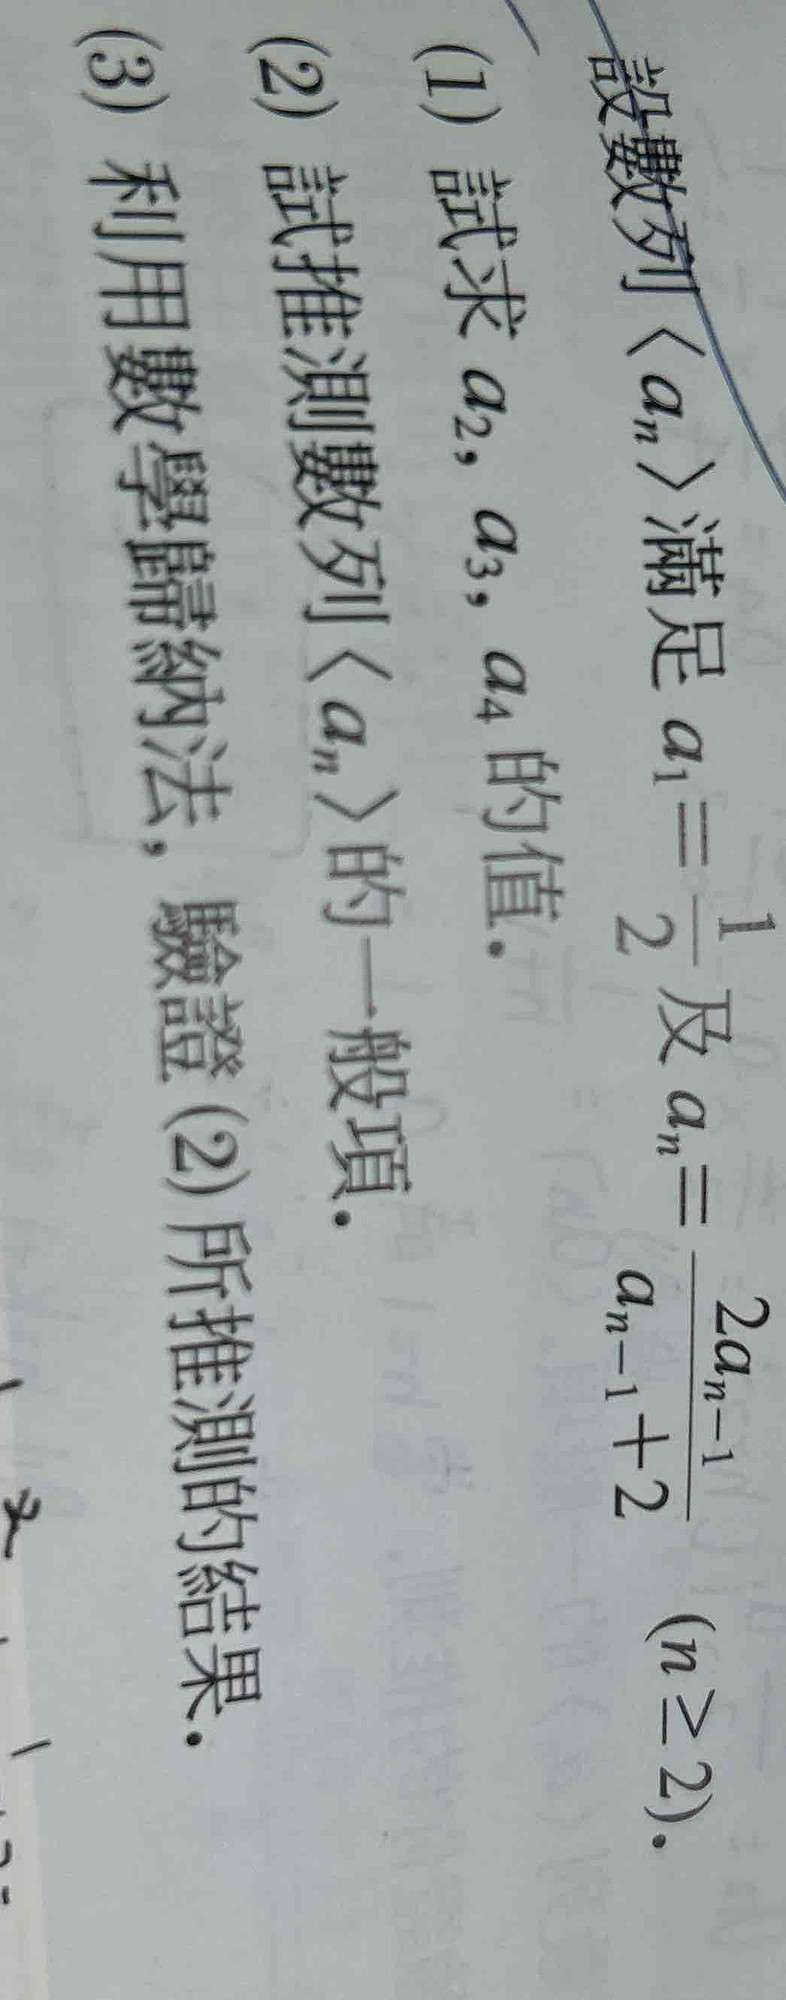 設數列〈aₙ〉滿足 a₁＝1/2 及 aₙ＝2aₙ₋₁/(aₙ₋₁＋2) (n≥2).
(1) 試求 a₂, a₃, a₄ 的值.
(2) 試推測數列〈aₙ〉的一般項.
(3) 利用數學歸納法, 驗證 (2) 所推測的結果.